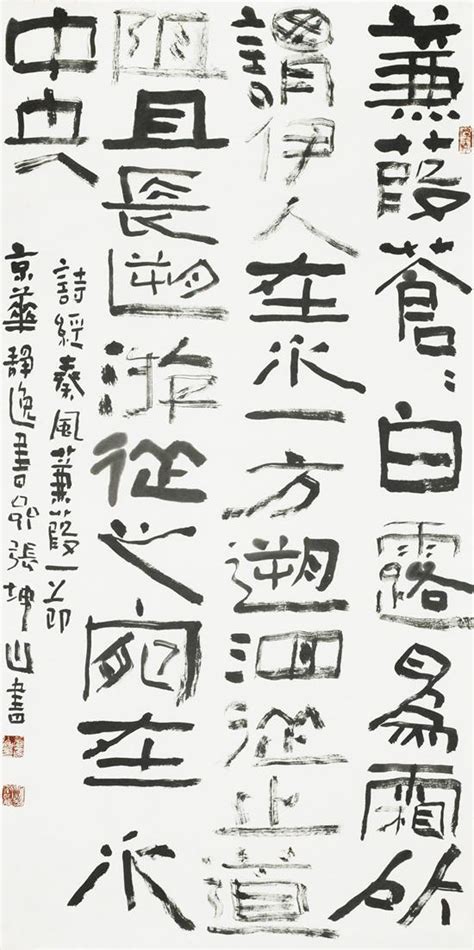 蒹葭蒼〻白露為霜所
謂伊人在水一方遡洄從之道
阻且長遡游從之宛在水
中央
詩經秦風蒹葭一節
京華靜逸書張坤山書